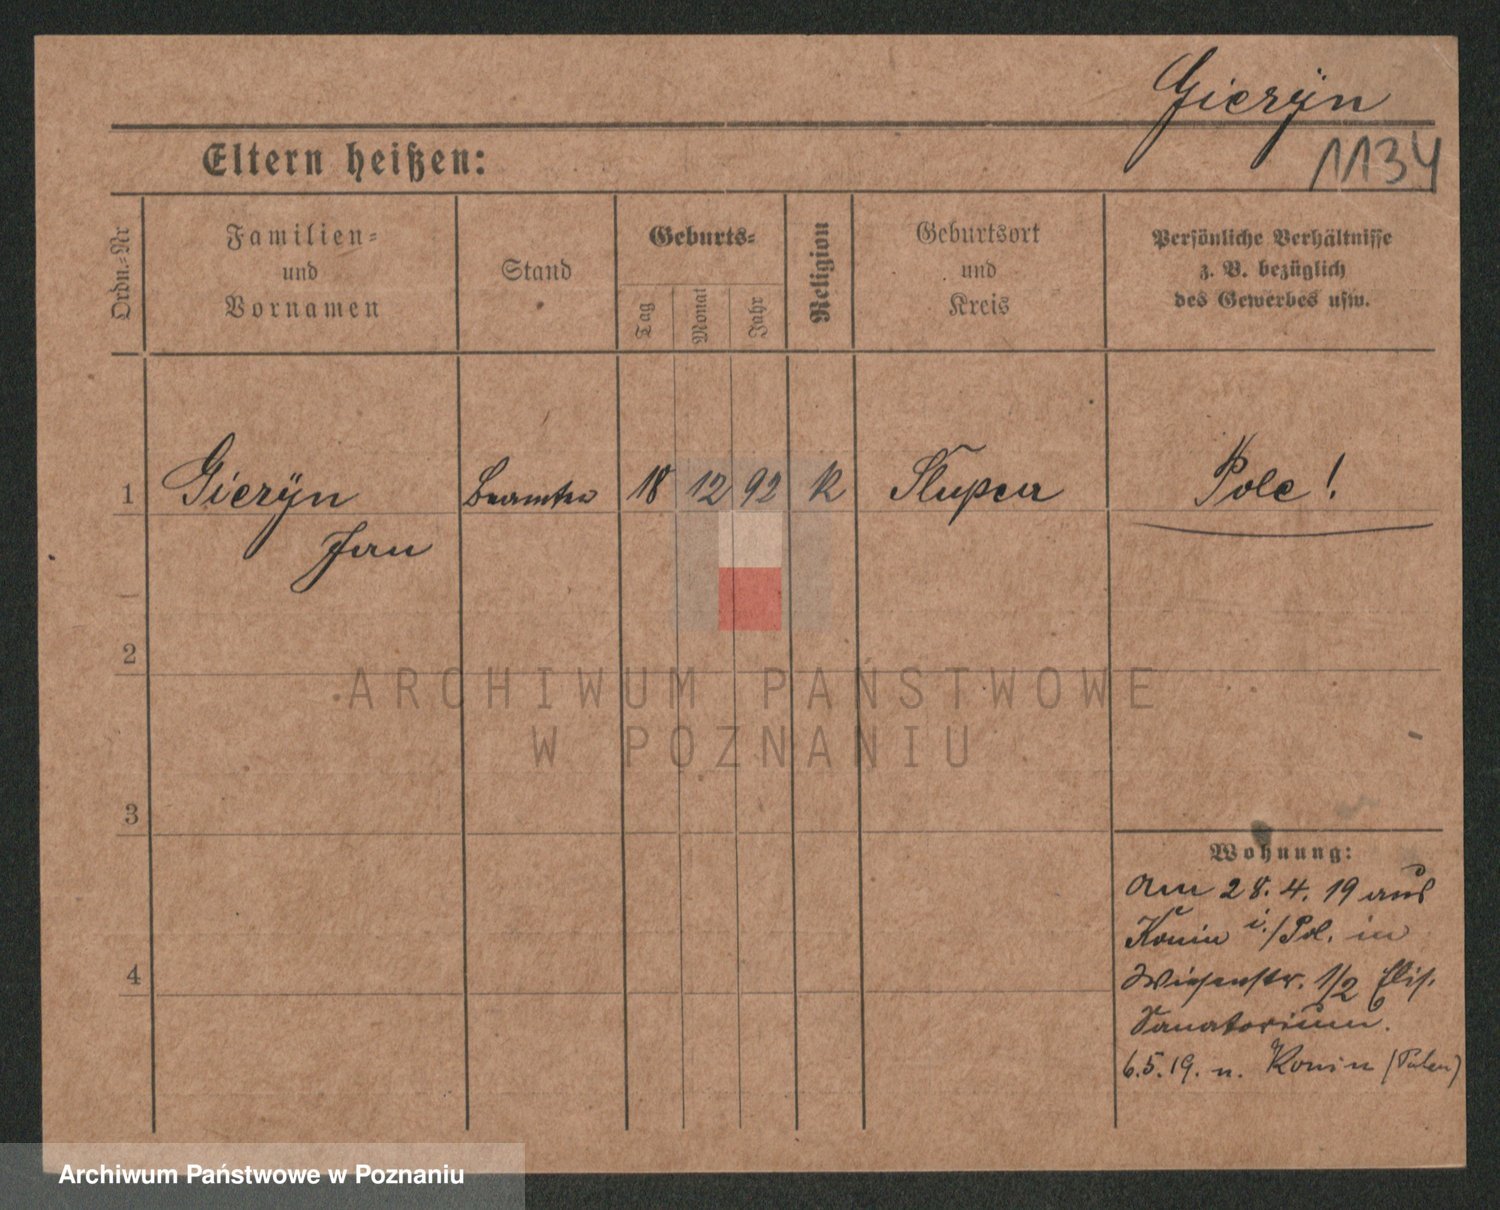 Gierÿn
1134
Eltern heißen:
Ordn.-Nr
Familien-
und
Vornamen
Stand
Geburts-
Tag
Monat
Jahr
Religion
Geburtsort
und
Kreis
Persönliche Verhältnisse
z. B. bezüglich
des Gewerbes usw.
1 Gierÿn Beamter 18 12 92 K Slupca Pole!
Jan
2
ARCHIWUM PAŃSTWOWE
W POZNANIU
3
Wohnung:
Am 28.4.19 aus
Konin i./Pol. in
4
Wiesenstr. 1/2 Elis.
Sanatorium.
6.5.19. n. Konin (Polen)
Archiwum Państwowe w Poznaniu